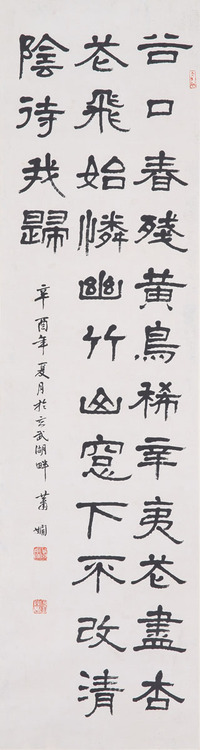 谷口春殘黃鳥稀辛夷花盡杏
花飛始憐幽竹山窗下不改清
陰待我歸
辛酉年夏月於玄武湖畔 蕭嫻